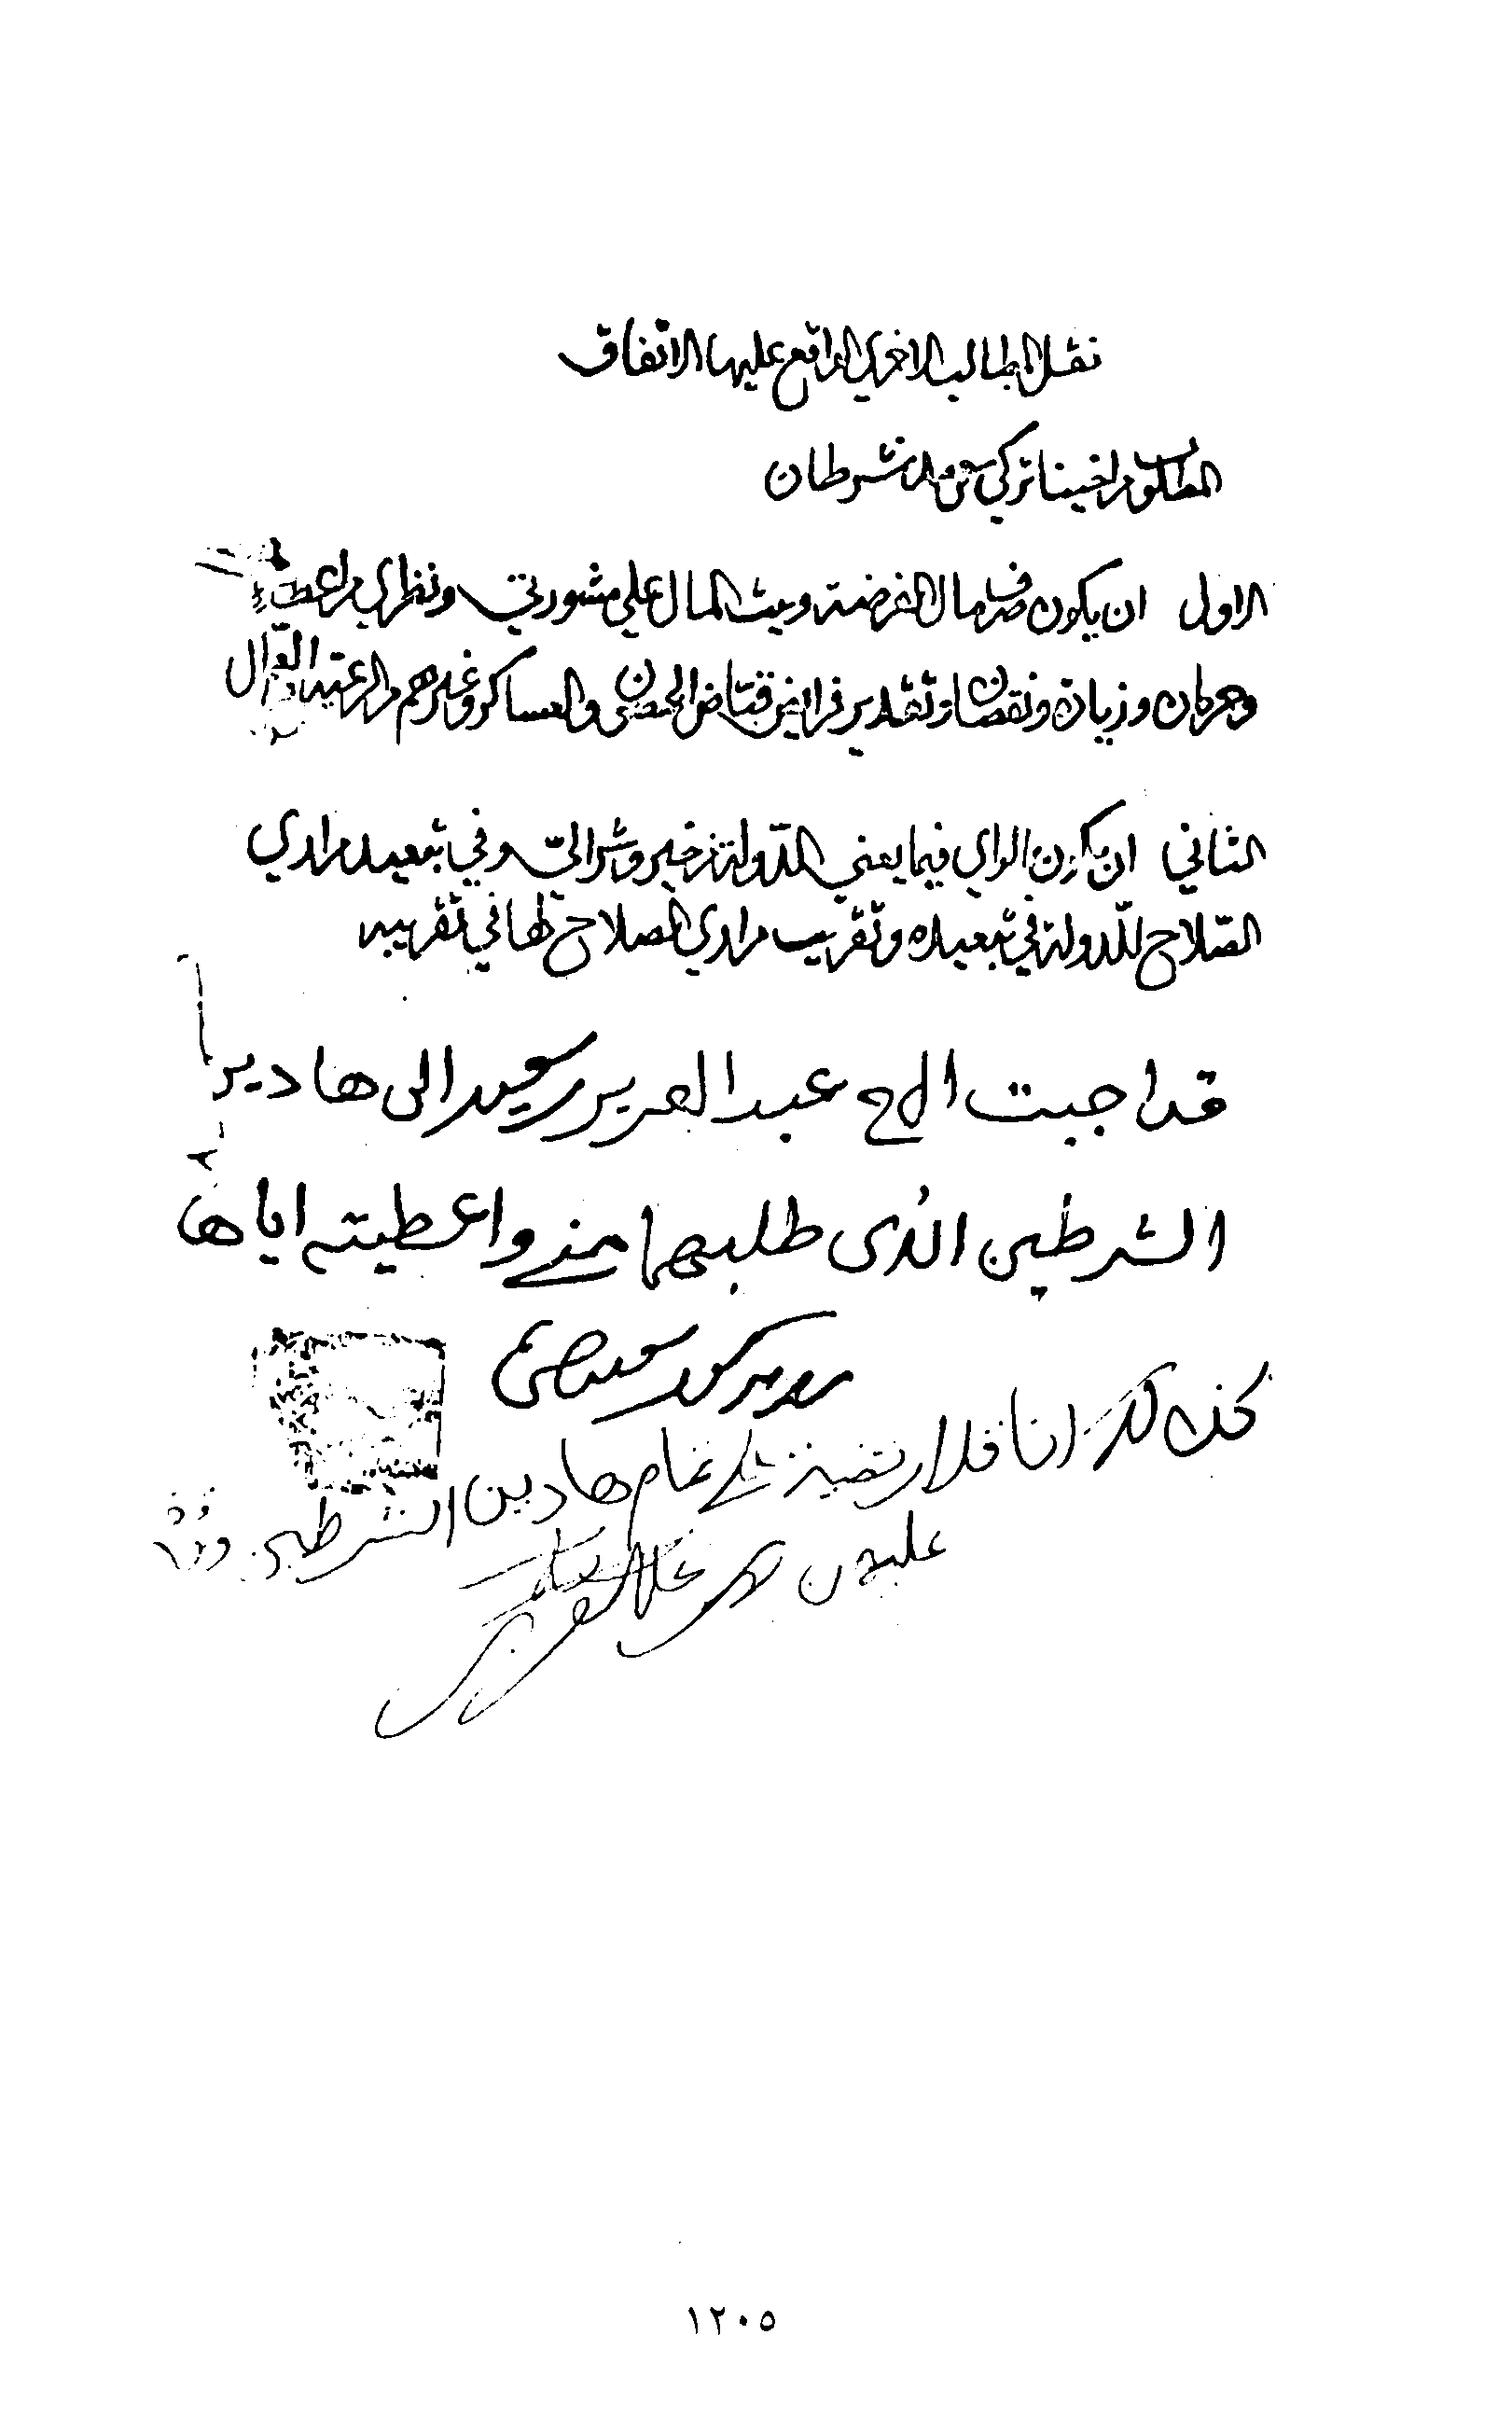 نقل المطالب الاخرى الواقع عليها الاتفاق
المطلوب من اخينا تركي بن سعيد شرطان
الاول ان يكون صرف مال الفرضة وبيت المال علي مشورتي ونظري من اعطاء
وحرمان وزيادة ونقصان وتقدير فرايض قباض الحصون والعساكر وغيرهم والرعية
الثاني ان يكون الراي فيما يعني الدولة من خير وشر اليّ وفي تبعيد من ارادي
الصّلاح للدولة في تبعيده وتقريب من ارادي الصلاح لها في تقريبه
قد اجبت الاخ عبد العزيز بن سعيد الى هادين
الشرطين الذى طلبهما منى واعطيته اياها
تركي بن سعيد
كذلك انا قد ارتضيت على تمام هادين الشرطين
عبد العزيز
١٢٠٥